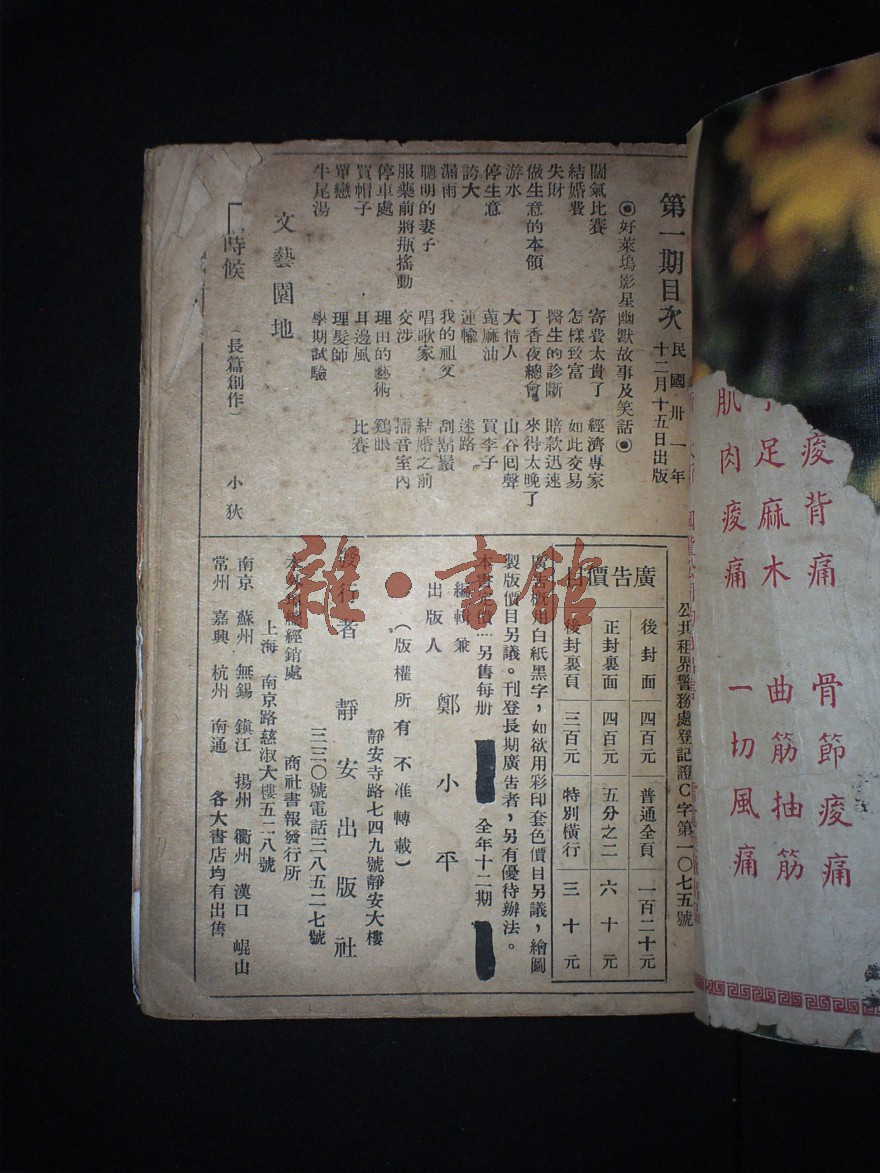 第一期目次
民國卅一年
十二月十五日出版
◉好萊塢影星幽默故事及笑話◉
鬪氣比賽 寄費太貴了 經濟專家
結婚費 怎樣致富 如此交易
失財 醫生的診斷 賠款迅速
做生意的本領 丁香夜總會 來得太晚了
游水 大情人 山谷囘聲
停生意 萆麻油 買李子
誇大 運輸 迷路
漏雨 我的祖父 刮鬍鬚
聰明的妻子 唱歌家 結婚之前
服藥前將瓶搖動 交涉 播音室內
停車處 理由的藝術 鷄眼
買帽子 耳邊風 比賽
單戀 理髮師
牛尾湯 學期試驗
文藝園地
時候 (長篇創作) 小狄
公共租界警務處登記證C字第一〇七五號
廣告價目
後封面 四百元 普通全頁 一百二十元
正封裏面 四百元 五分之二 六十元
後封裏頁 三百元 特別橫行 三十元
廣告概用白紙黑字,如欲用彩印套色價目另議,繪圖
製版價目另議。刊登長期廣告者,另有優待辦法。
本書定價:…另售每册 全年十二期
編輯兼
出版人 鄭小平
(版權所有 不准轉載)
靜安寺路七四九號靜安大樓
發行者 靜安出版社
三三〇號電話三八五二七號
本外埠總經銷處 商社書報發行所
上海 南京路慈淑大樓五二八號
南京 蘇州 無錫 鎭江 揚州 衢州 漢口 崐山
常州 嘉興 杭州 南通 各大書店均有出售
雜·書館
痠背痛 骨節痠痛
足麻木 曲筋抽筋
肌肉痠痛 一切風痛